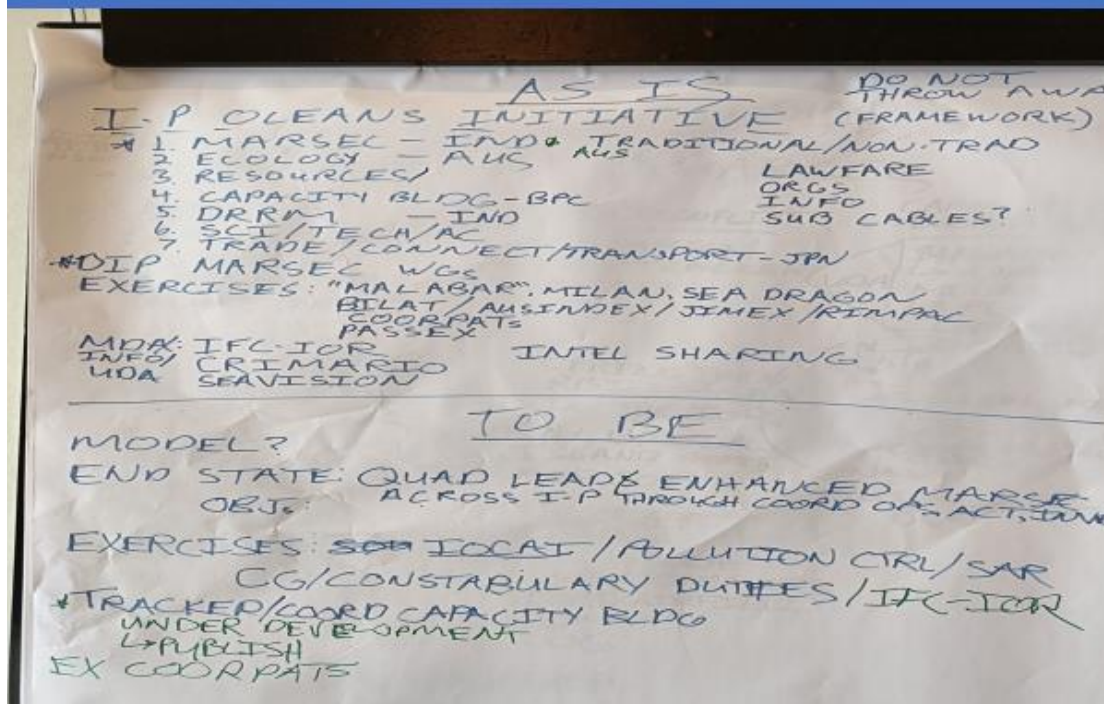 AS IS
DO NOT
THROW AWA
I-P OCEANS INITIATIVE (FRAMEWORK)
* 1. MARSEC - IND & AUS TRADITIONAL/NON-TRAD
2 ECOLOGY - AUS
LAWFARE
3. RESOURCES/
ORGS
4. CAPACITY BLDG-BPC
INFO
5. DRRM - IND
SUB CABLES?
6. SCI/TECH/AC
7. TRADE/CONNECT/TRANSPORT-JPN
*DIP MARSEC WGs
EXERCISES: "MALABAR", MILAN, SEA DRAGON
BILAT/AUSINDEX/JIMEX/RIMPAC
COORPATs
PASSEX
MDA: IFC-IOR INTEL SHARING
INFO/ CRIMARIO
UDA SEAVISION
TO BE
MODEL?
END STATE: QUAD LEADS ENHANCED MARSE
OBJ: ACROSS I-P THROUGH COORD OPS, ACT, INV
EXERCISES: IOCAT/POLLUTION CTRL/SAR
CG/CONSTABULARY DUTIES/IFC-IOR
*TRACKED/COORD CAPACITY BLDG
UNDER DEVELOPMENT
↳PUBLISH
EX COORPATS